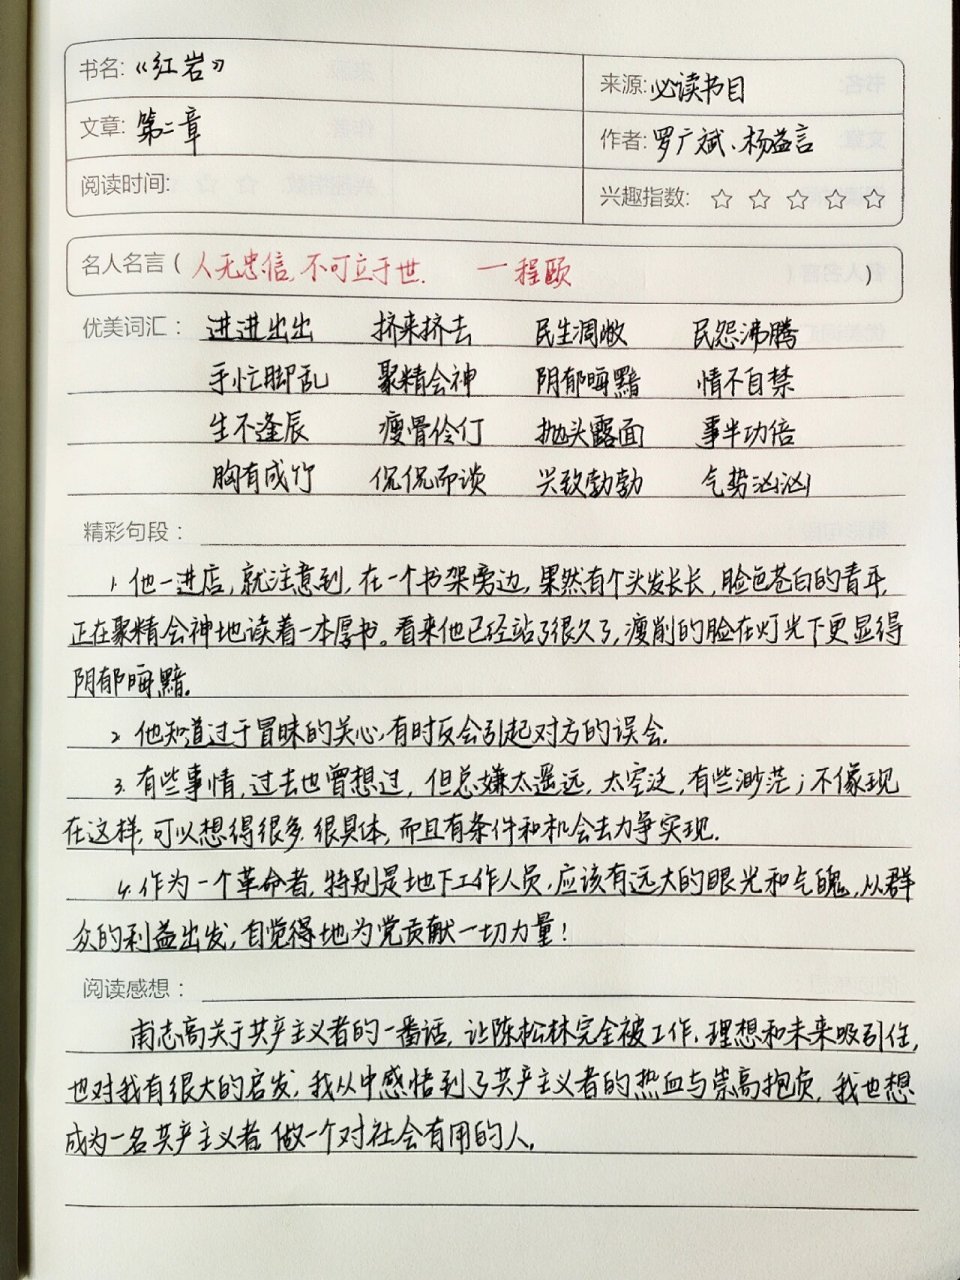 书名:《红岩》
来源:必读书目
文章:第二章
作者:罗广斌、杨益言
阅读时间:
兴趣指数: ☆ ☆ ☆ ☆ ☆
名人名言(人无忠信,不可立于世. 一程颐)
优美词汇: 进进出出 挤来挤去 民生凋敝 民怨沸腾
手忙脚乱 聚精会神 阴郁晦黯 情不自禁
生不逢辰 瘦骨伶仃 抛头露面 事半功倍
胸有成竹 侃侃而谈 兴致勃勃 气势汹汹
精彩句段:
1.他一进店,就注意到,在一个书架旁边,果然有个头发长长,脸色苍白的青年,
正在聚精会神地读着一本厚书。看来他已经站了很久了,瘦削的脸在灯光下更显得
阴郁晦黯.
2.他知道过于冒昧的关心,有时反会引起对方的误会.
3.有些事情,过去也曾想过,但总嫌太遥远,太空泛,有些渺茫;不像现
在这样,可以想得很多.很具体,而且有条件和机会去力争实现.
4.作为一个革命者,特别是地下工作人员,应该有远大的眼光和气魄,从群
众的利益出发,自觉得地为党贡献一切力量!
阅读感想:
甫志高关于共产主义者的一番话,让陈松林完全被工作、理想和未来吸引住,
也对我有很大的启发,我从中感悟到了共产主义者的热血与崇高抱负,我也想
成为一名共产主义者.做一个对社会有用的人.